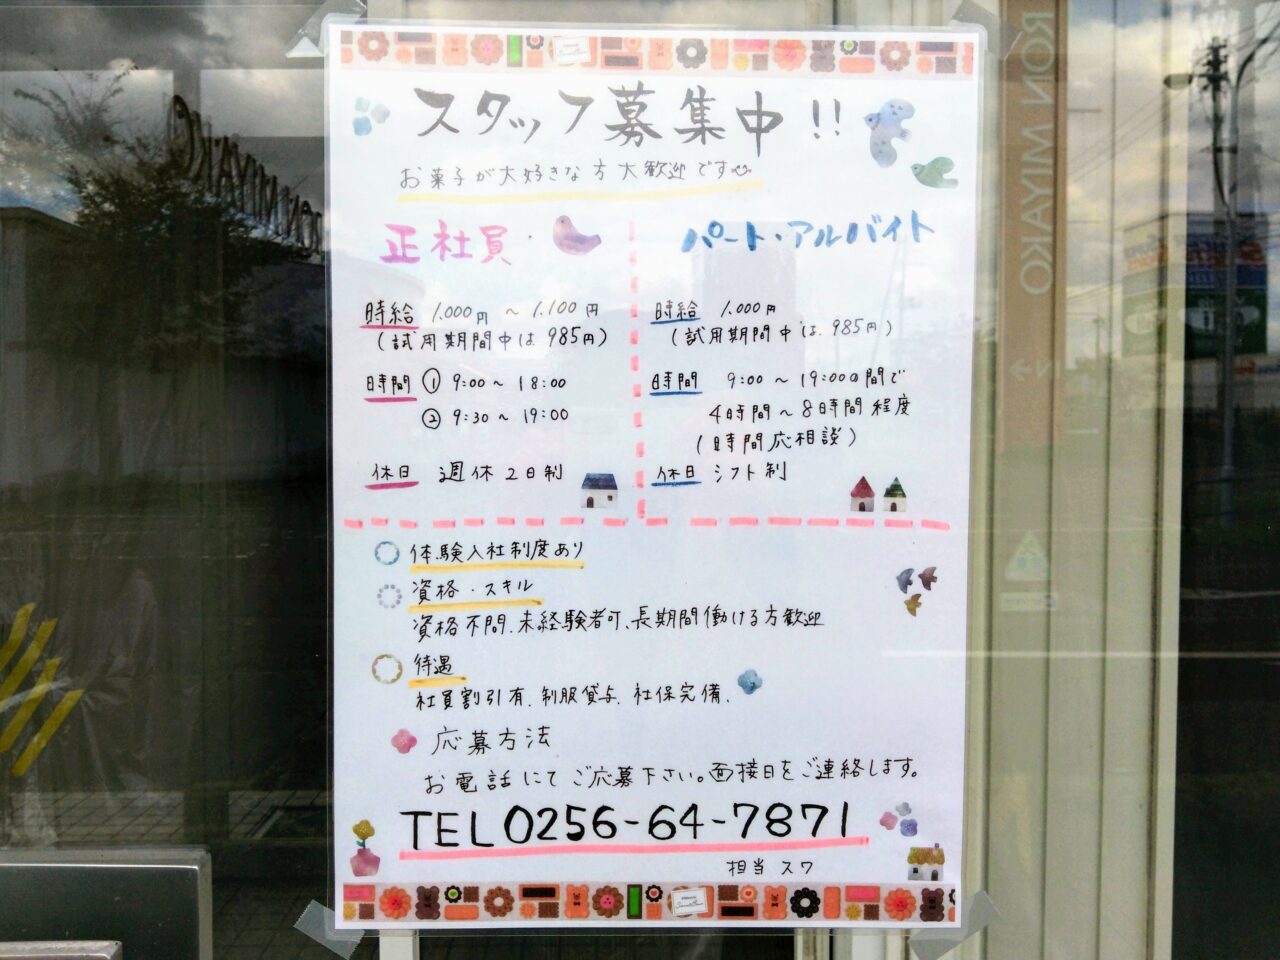 スタッフ募集中!!
お菓子が大好きな方大歓迎です
正社員
時給 1.000円 〜 1.100円
(試用期間中は 985円)
時間 ① 9:00 〜 18:00
② 9:30 〜 19:00
休日 週休2日制
パート・アルバイト
時給 1.000円
(試用期間中は 985円)
時間 9:00 〜 19:00の間で
4時間〜8時間程度
(時間応相談)
休日 シフト制
体験入社制度あり
資格・スキル
資格不問、未経験者可、長期間働ける方歓迎
待遇
社員割引有、制服貸与、社保完備、
応募方法
お電話にてご応募下さい。面接日をご連絡します。
TEL 0256-64-7871
担当 スワ
RON MIYAKO